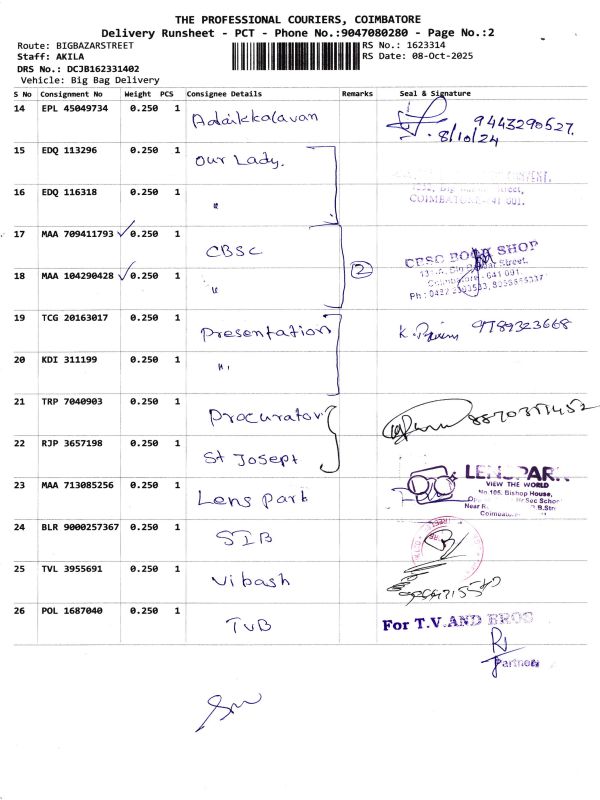 THE PROFESSIONAL COURIERS, COIMBATORE
Delivery Runsheet - PCT - Phone No.:9047080280 - Page No.:2
Route: BIGBAZARSTREET
RS No.: 1623314
Staff: AKILA
RS Date: 08-Oct-2025
DRS No.: DCJB162331402
Vehicle: Big Bag Delivery
S No Consignment No Weight PCS Consignee Details Remarks Seal & Signature
14 EPL 45049734 0.250 1 Adaikkalavan 9443290527
8/10/24
15 EDQ 113296 0.250 1 Our Lady.
16 EDQ 116318 0.250 1 "
Street,
COIMBATORE - 641 001.
17 MAA 709411793 0.250 1 CBSC
CBSC BOOK SHOP
Street,
Coimbatore - 641 001.
18 MAA 104290428 0.250 1 " 2
19 TCG 20163017 0.250 1 Presentation K. 9789323668
20 KDI 311199 0.250 1 "
21 TRP 7040903 0.250 1 Procurator
22 RJP 3657198 0.250 1 St Joseph
23 MAA 713085256 0.250 1 Lens Park
LENSPARK
VIEW THE WORLD
No 105, Bishop House,
24 BLR 9000257367 0.250 1 SIB
25 TVL 3955691 0.250 1 Vibash
26 POL 1687040 0.250 1 TVB
For T.V.AND BROS
Partner